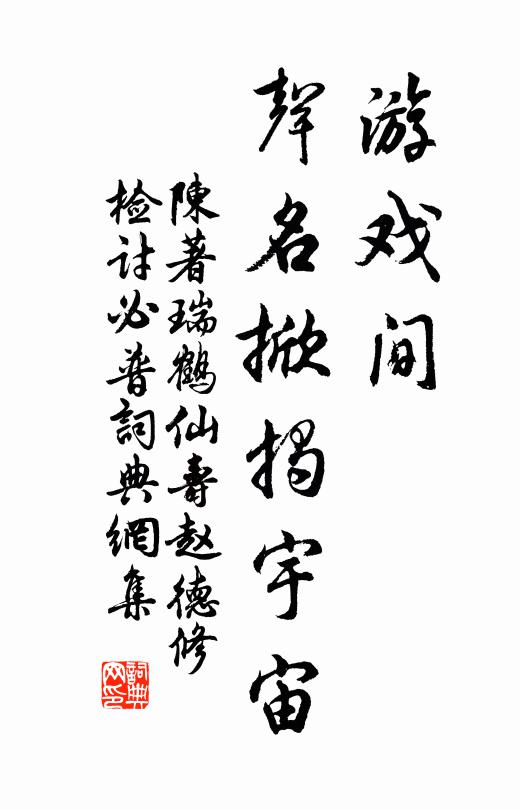 游戏间
声名掀揭宇宙
陳著瑞鶴仙壽赵德修
检讨必普詞典網集
詞典网印